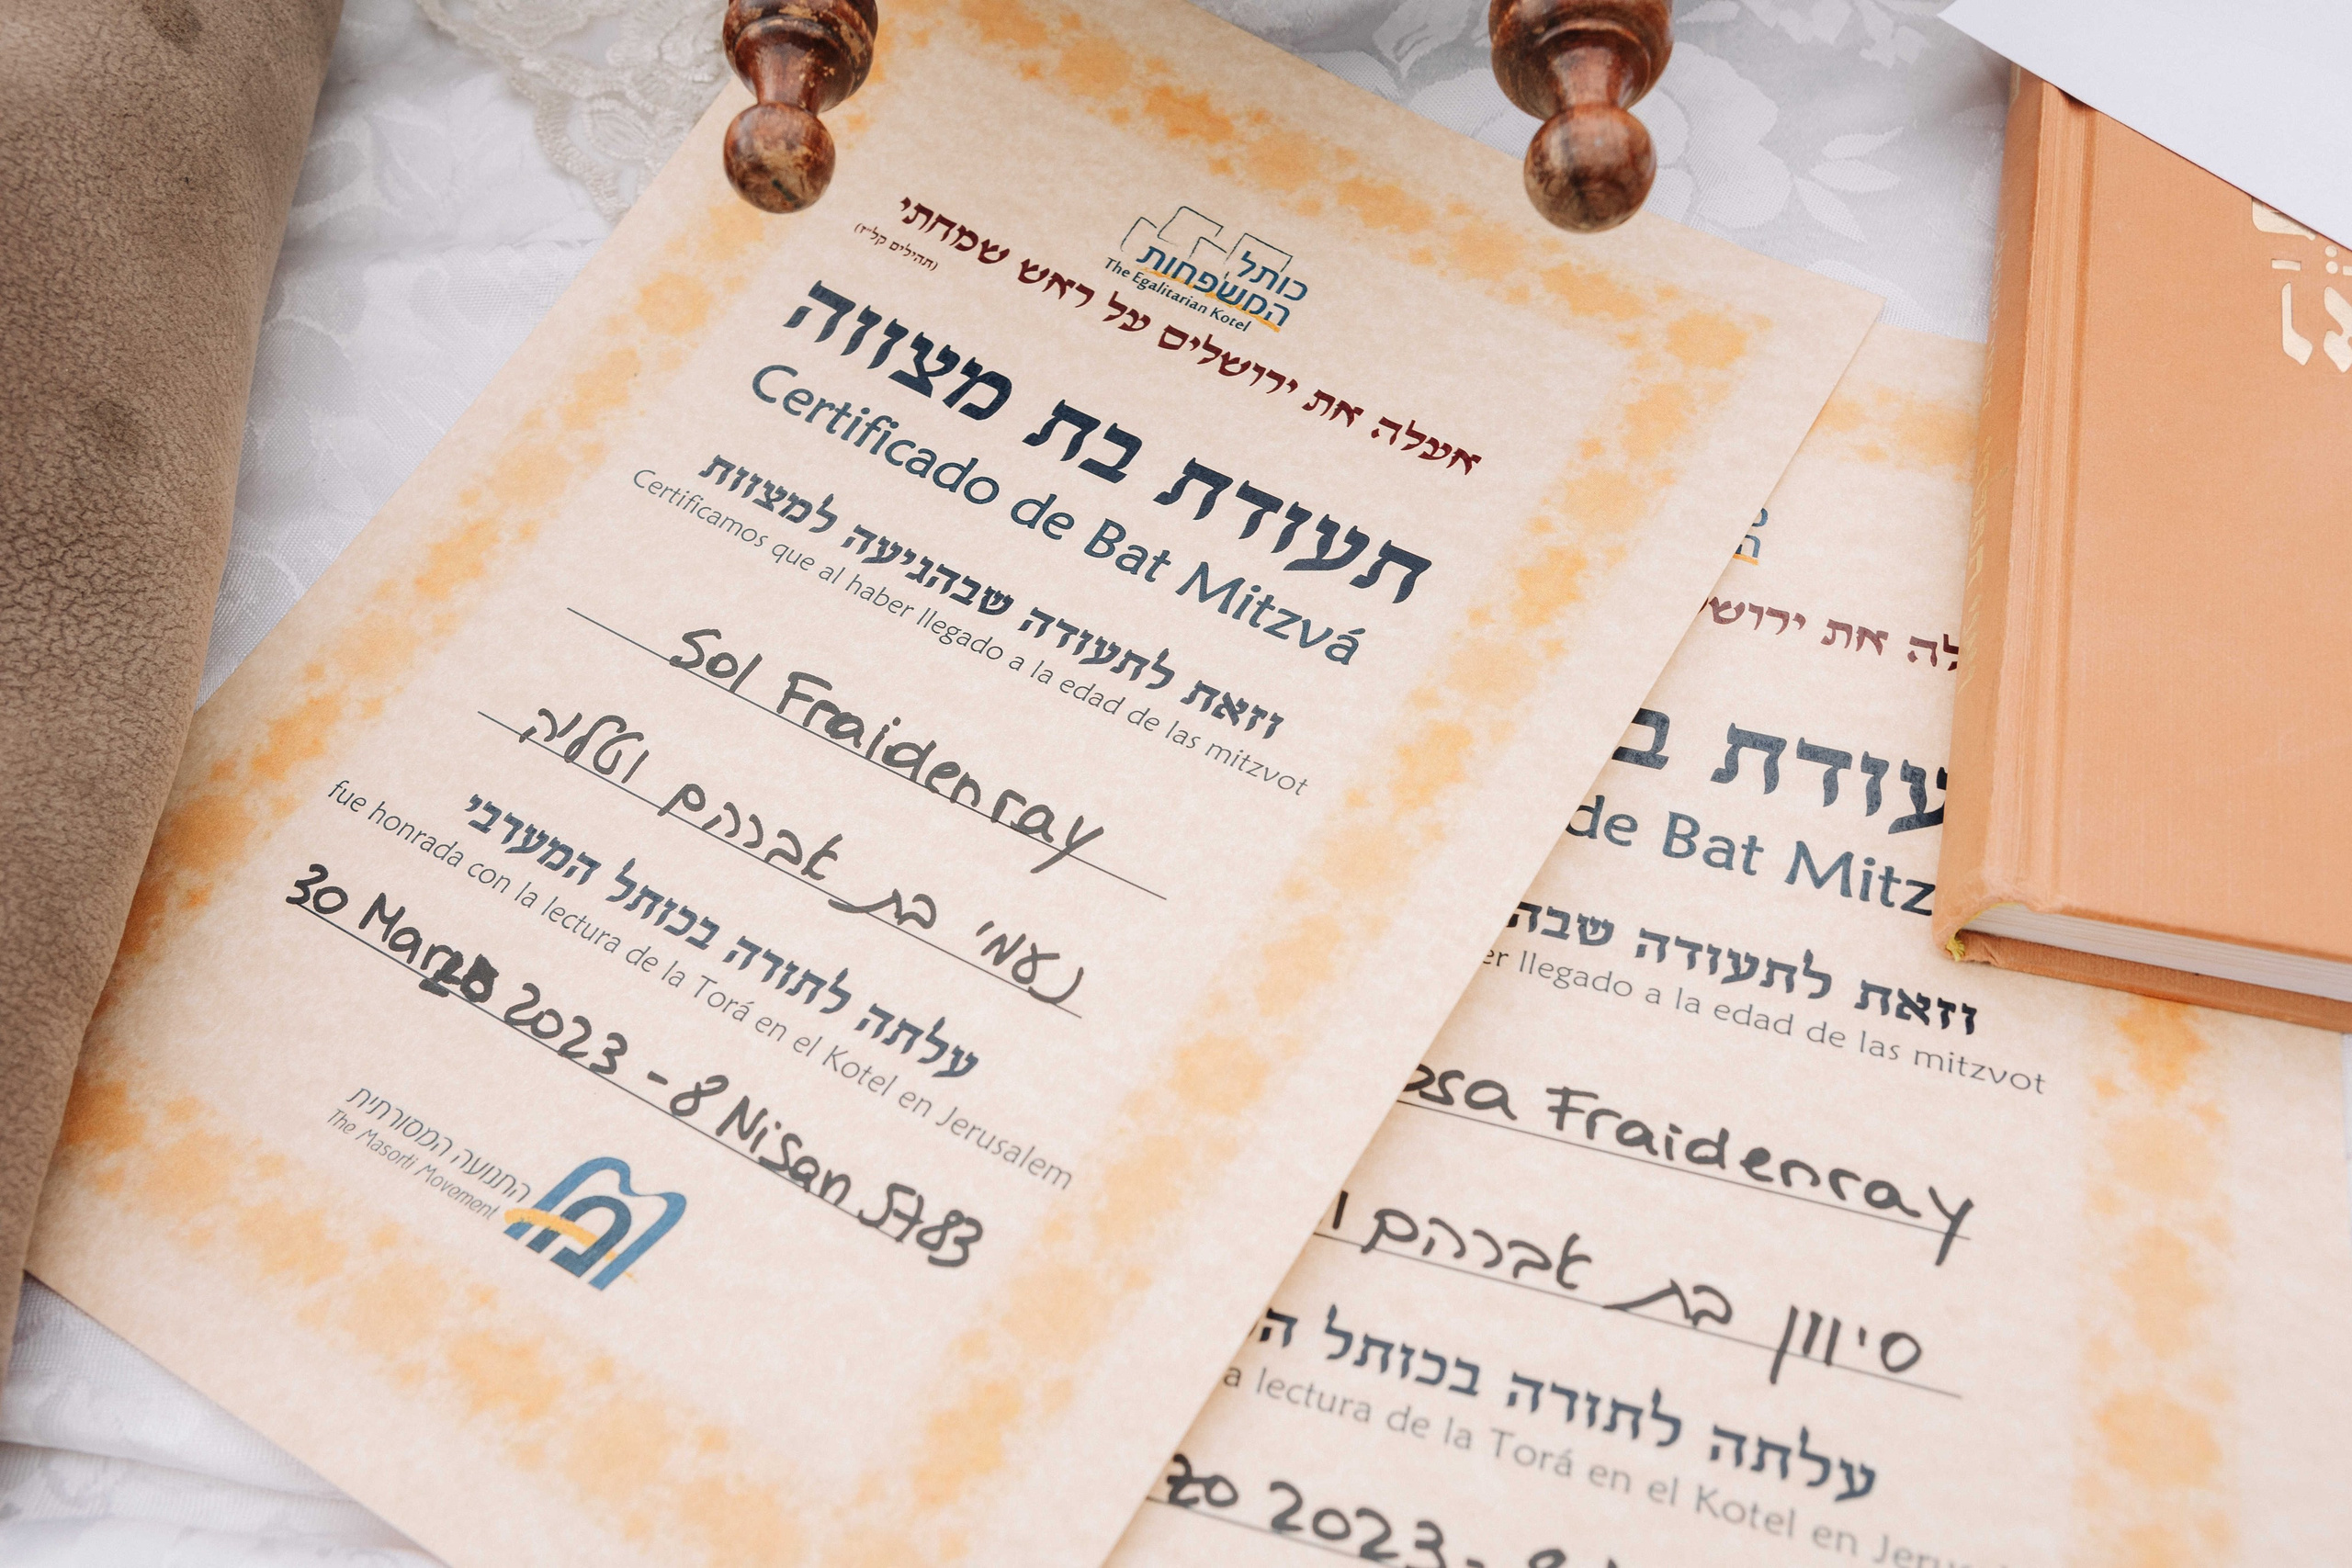 כותל
המשפחות
The Egalitarian Kotel
אעלה את ירושלים על ראש שמחתי
(תהילים קל"ז)
תעודת בת מצווה
Certificado de Bat Mitzvá
וזאת לתעודה שבהגיעה למצוות
Certificamos que al haber llegado a la edad de las mitzvot
Sol Fraidenray
נעמי בת אברהם וטליה
עלתה לתורה בכותל המערבי
fue honrada con la lectura de la Torá en el Kotel en Jerusalem
30 Marzo 2023 - 8 Nisan 5783
התנועה המסורתית
The Masorti Movement
לה את ירוש
עודת ב
de Bat Mitz
וזאת לתעודה שבה
er llegado a la edad de las mitzvot
osa Fraidenray
סיוון בת אברהם ו
עלתה לתורה בכותל ה
a lectura de la Torá en el Kotel en Jerus
zo 2023 - 8